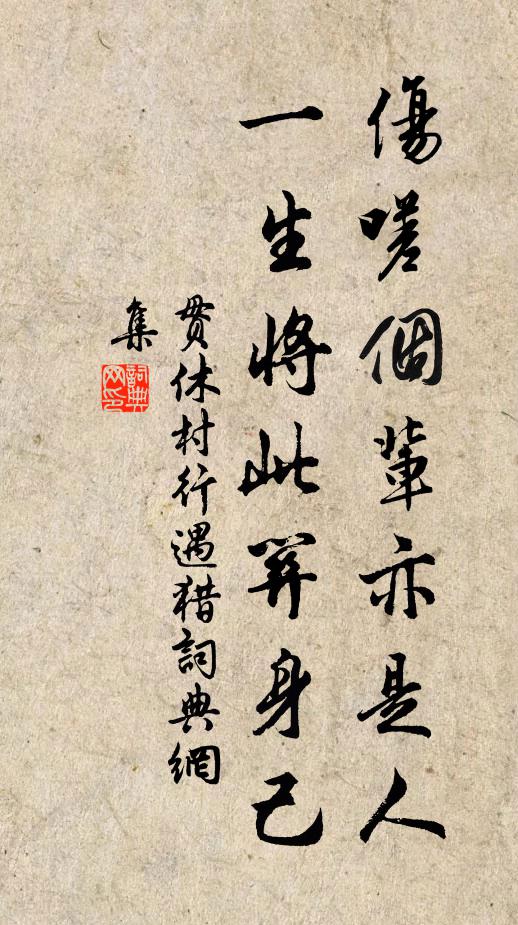 傷嗟個輩亦是人
一生將此關身己
貫休村行遇猎詞典網
集
詞典
网印